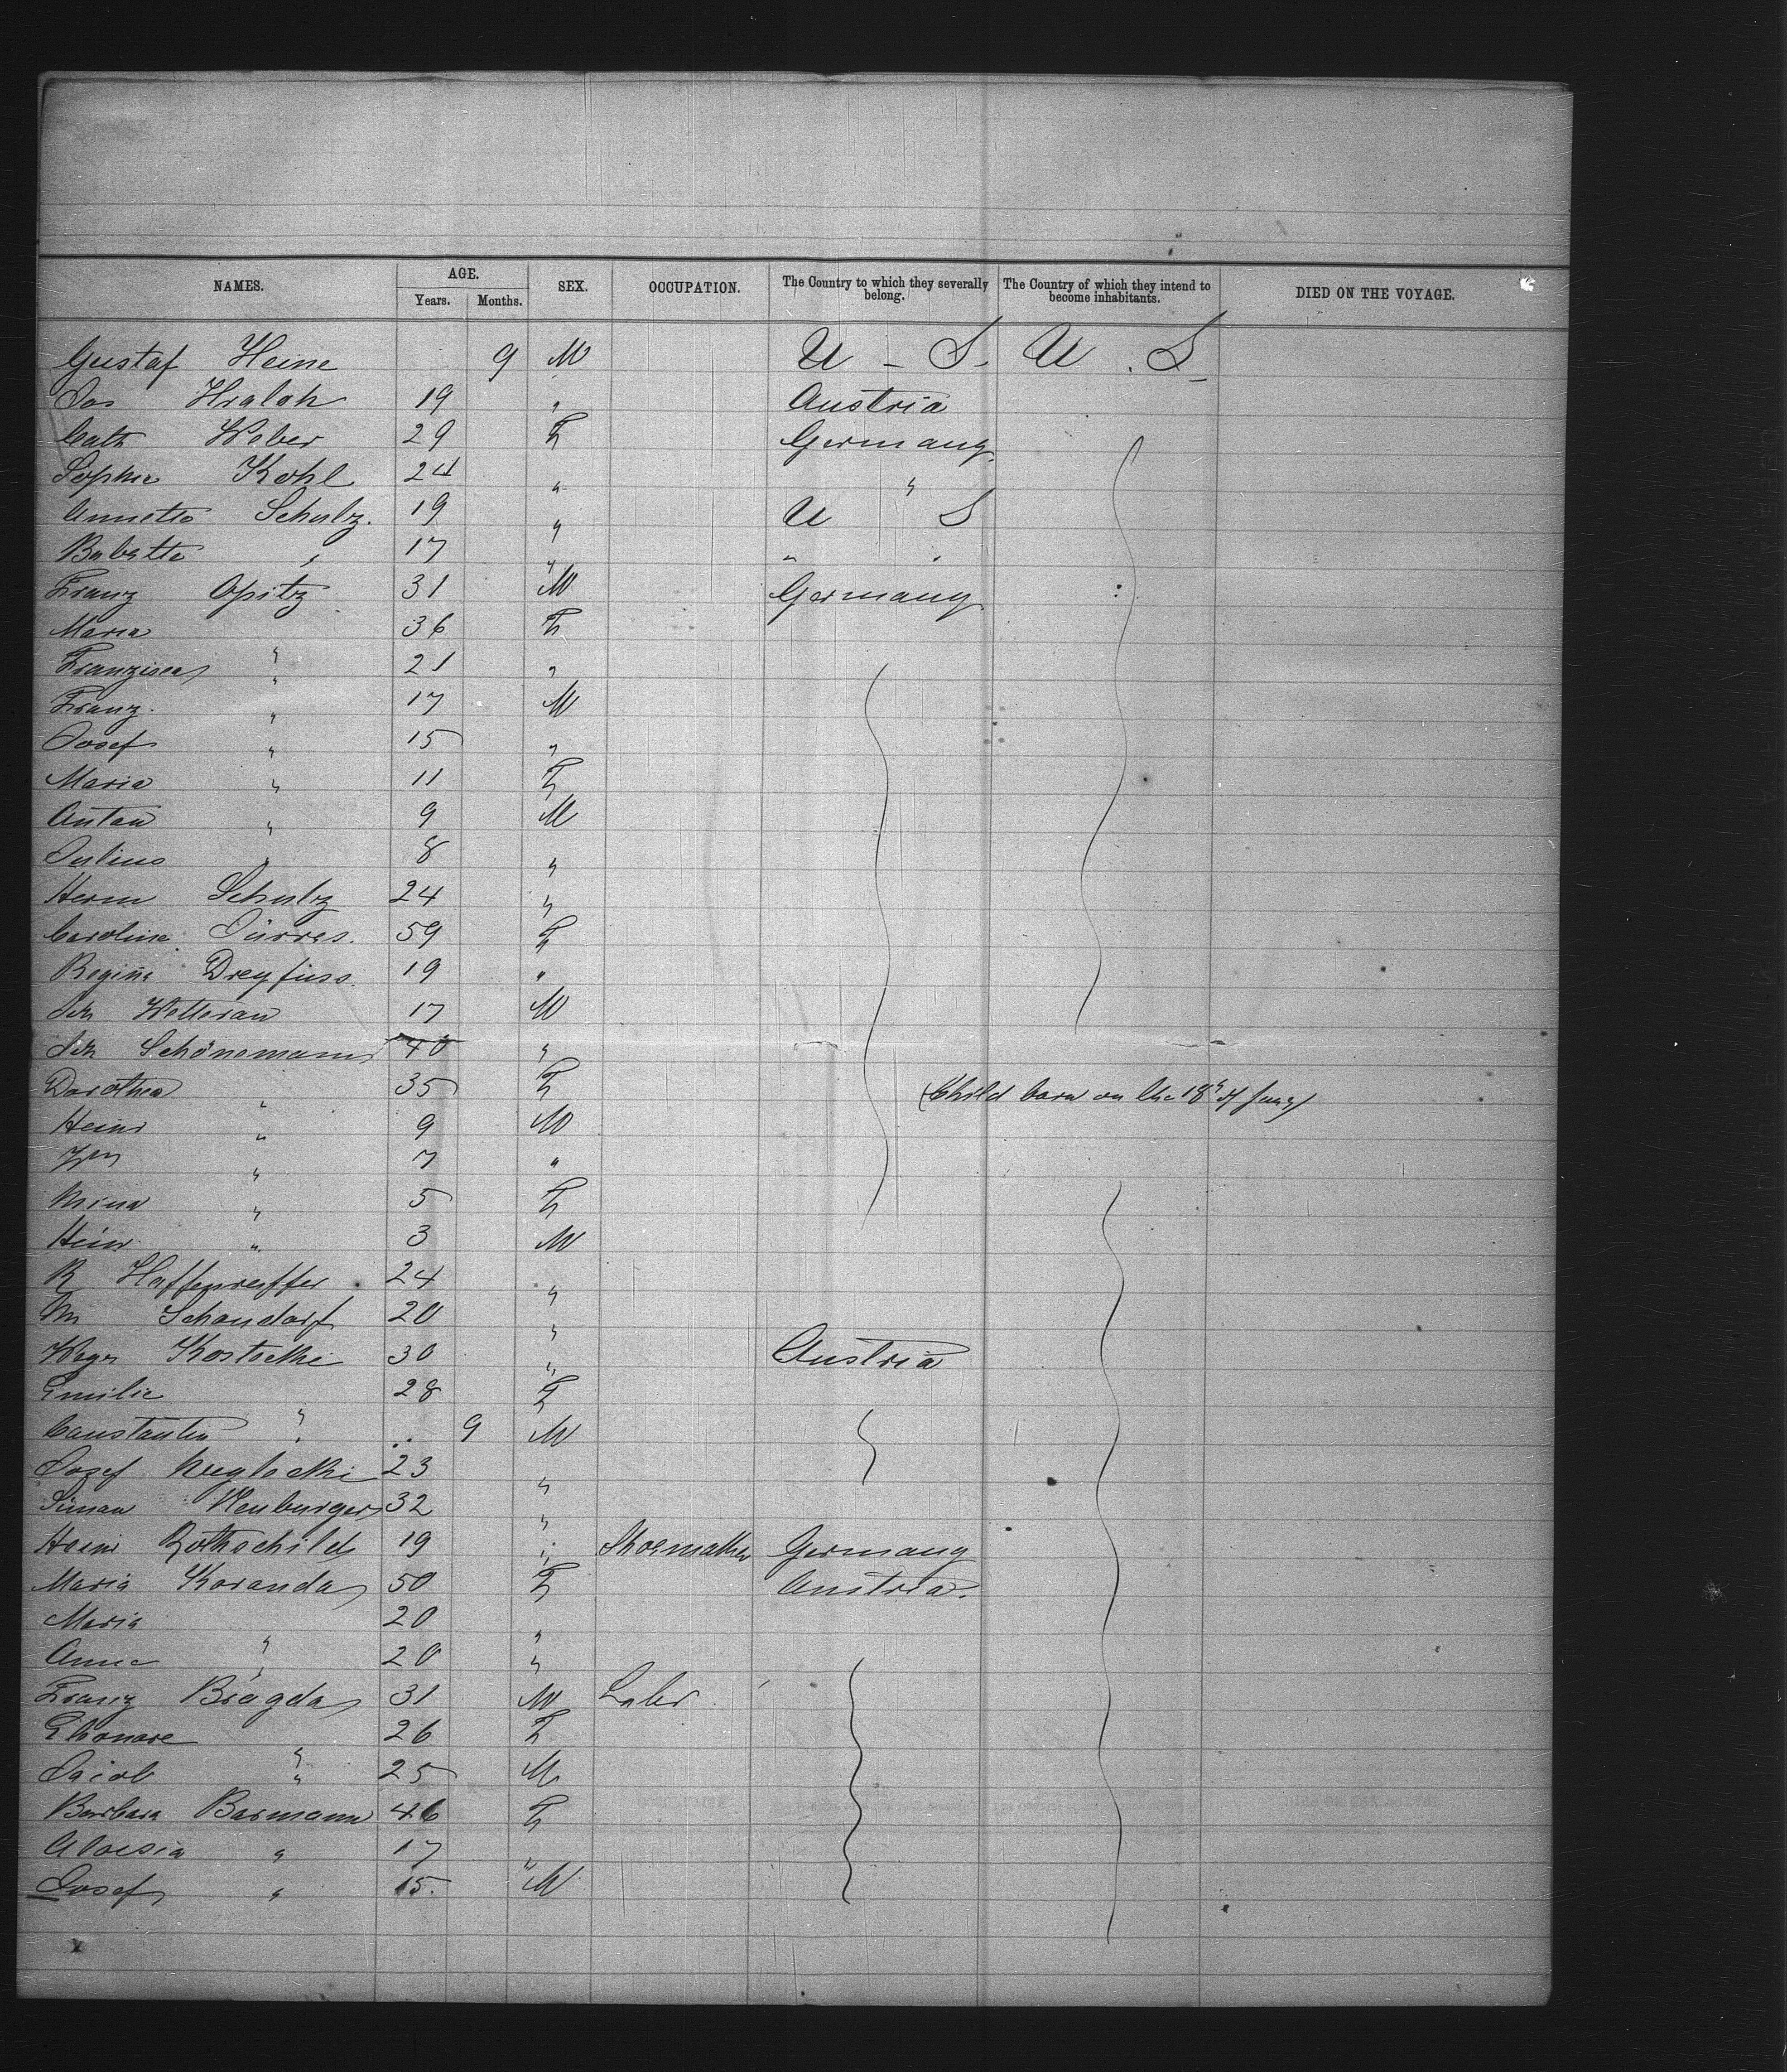 NAMES. AGE. SEX. OCCUPATION. The Country to which they severally belong. The Country of which they intend to become inhabitants. DIED ON THE VOYAGE.
Years. Months.
Gustaf Heine 9 M U - S. U. S.
Jos 19 " Austria
Cath Weber 29 F Germany.
Sophie Kohl 24 " "
Annette Schulz. 19 " U S
Babette " 17 " " "
Franz Opitz 31 M Germany
Maria " 36 F
Franzisca " 21 "
Franz. " 17 M
Josef " 15 "
Maria " 11 F
Anton " 9 M
Julius " 8 "
Herm Schulz 24 "
Caroline Dürres. 59 F
Regina Dreyfuss. 19 "
Wetterau 17 M
Schönemann 40 "
Dorothea " 35 F (Child born on the 18th of
Heinr " 9 M
Wm " 7 "
Mina " 5 F
Heinr. " 3 M
R Haffenreffer 24 "
M Schondorf 20 "
30 " Austria
Emilie " 28 F
Constantin " 9 M
Josef 23 "
Simon Neuburger 32 "
Heinr Rothschild 19 " Shoemaker Germany
Maria Koranda 50 F Austria.
Maria " 20 "
Anna " 20 "
Franz Bragda 31 M Labr
Eleonore " 26 F
Jacob " 25 M
Barbara Barmann 46 F
Aloisia " 17 "
Josef " 15. M
x